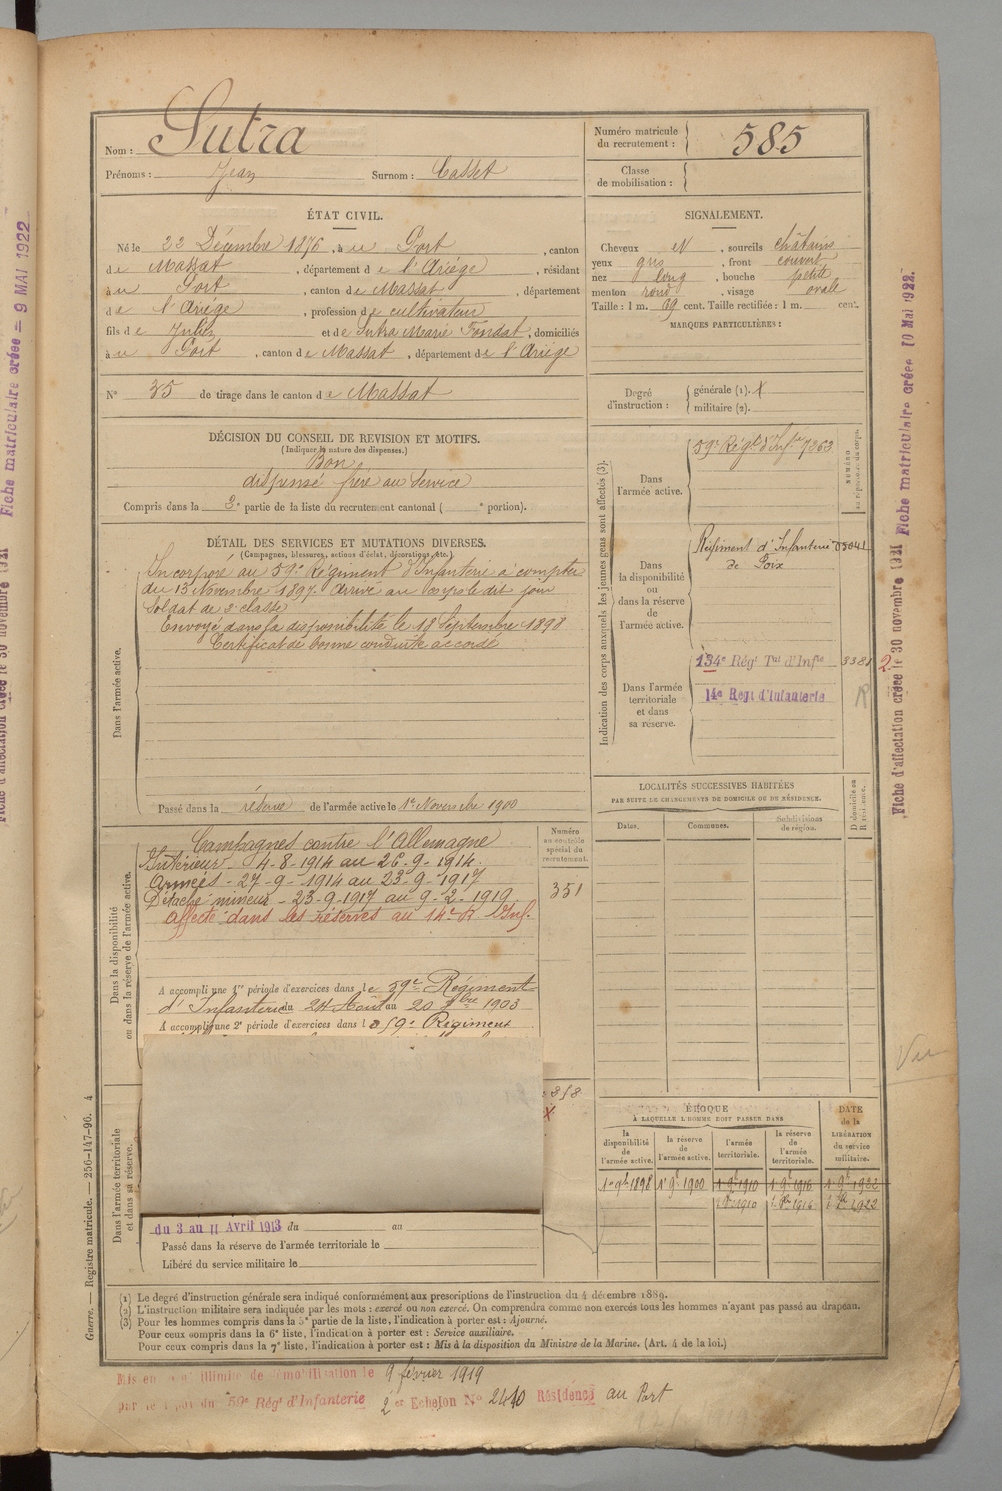 Nom : Sutra
Prénoms : Jean Surnom : Casset
Numéro matricule du recrutement : 585
Classe de mobilisation :
ÉTAT CIVIL.
Né le 22 Décembre 1876, à u Port, canton
de Massat, département de l'Ariège, résidant
à u Port, canton de Massat, département
de l'Ariège, profession de cultivateur
fils de Jules et de Sutra Marie Fondat, domiciliés
à u Port, canton de Massat, département de l'Ariège
SIGNALEMENT.
Cheveux N, sourcils châtains
yeux gris, front couvert
nez long, bouche petite
menton rond, visage ovale
Taille : 1 m. 69 cent. Taille rectifiée : 1 m. cent.
MARQUES PARTICULIÈRES :
N° 35 de tirage dans le canton de Massat
Degré d'instruction : générale (1). militaire (2).
DÉCISION DU CONSEIL DE REVISION ET MOTIFS.
(Indiquer la nature des dispenses.)
Bon
dispensé frère au service
Compris dans la 3e partie de la liste du recrutement cantonal ( e portion).
DÉTAIL DES SERVICES ET MUTATIONS DIVERSES.
(Campagnes, blessures, actions d'éclat, décorations, etc.)
Dans l'armée active.
Incorporé au 59e Régiment d'Infanterie à compter
du 13 Novembre 1897. Arrivé au corps le dit jour
Soldat de 2e classe
Envoyé dans la disponibilité le 18 Septembre 1898
Certificat de bonne conduite accordé
Passé dans la réserve de l'armée active le 1er Novembre 1900
Indication des corps auxquels les jeunes gens sont affectés (3).
Dans l'armée active.
59e Régt d'Infie 7263
NUMÉRO
au répertoire du corps.
Dans la disponibilité ou dans la réserve de l'armée active.
Régiment d'Infanterie 05041
de Foix
Dans l'armée territoriale et dans sa réserve.
134e Régt Tal d'Infie 3381
14e Regt d'Infanterie
LOCALITÉS SUCCESSIVES HABITÉES
PAR SUITE DE CHANGEMENTS DE DOMICILE OU DE RÉSIDENCE.
Dates. Communes. Subdivisions de région. D domicile ou R résidence.
Dans la disponibilité ou dans la réserve de l'armée active.
Numéro au contrôle spécial du recrutement.
351
Campagnes contre l'Allemagne
Intérieur 4-8-1914 au 26-9-1914.
Armées - 27-9-1914 au 23-9-1917
Détaché mineur - 23-9-1917 au 9-2-1919
Affecté dans les réserves au 14e R. Inf.
A accompli une 1re période d'exercices dans le 59e Régiment
d'Infanterie du 24 Août au 20 7bre 1903
A accompli une 2e période d'exercices dans le 59e Régiment
Dans l'armée territoriale et dans sa réserve.
du 3 au 11 Avril 1913 du au
Passé dans la réserve de l'armée territoriale le
Libéré du service militaire le
ÉPOQUE
À LAQUELLE L'HOMME DOIT PASSER DANS
la disponibilité de l'armée active. la réserve de l'armée active. l'armée territoriale. la réserve de l'armée territoriale.
DATE de la LIBÉRATION du service militaire.
1er 9bre 1898 1er 9bre 1900 1er 9bre 1910 1er 9bre 1916 1er 9bre 1922
1910 1916 1922
(1) Le degré d'instruction générale sera indiqué conformément aux prescriptions de l'instruction du 4 décembre 1889.
(2) L'instruction militaire sera indiquée par les mots : exercé ou non exercé. On comprendra comme non exercés tous les hommes n'ayant pas passé au drapeau.
(3) Pour les hommes compris dans la 5e partie de la liste, l'indication à porter est : Ajourné.
Pour ceux compris dans la 6e liste, l'indication à porter est : Service auxiliaire.
Pour ceux compris dans la 7e liste, l'indication à porter est : Mis à la disposition du Ministre de la Marine. (Art. 4 de la loi.)
Mis en congé illimité de démobilisation le 9 février 1919
par le dépôt du 59e Régt d'Infanterie 2e Echelon N° 2410 Résidence au Port
Guerre. — Registre matricule. — 256-147-96. 4
Fiche matriculaire créée = 9 MAI 1922
Fiche d'affectation créée le 30 novembre 1921 Fiche matriculaire créée 10 Mai 1922.
Vu